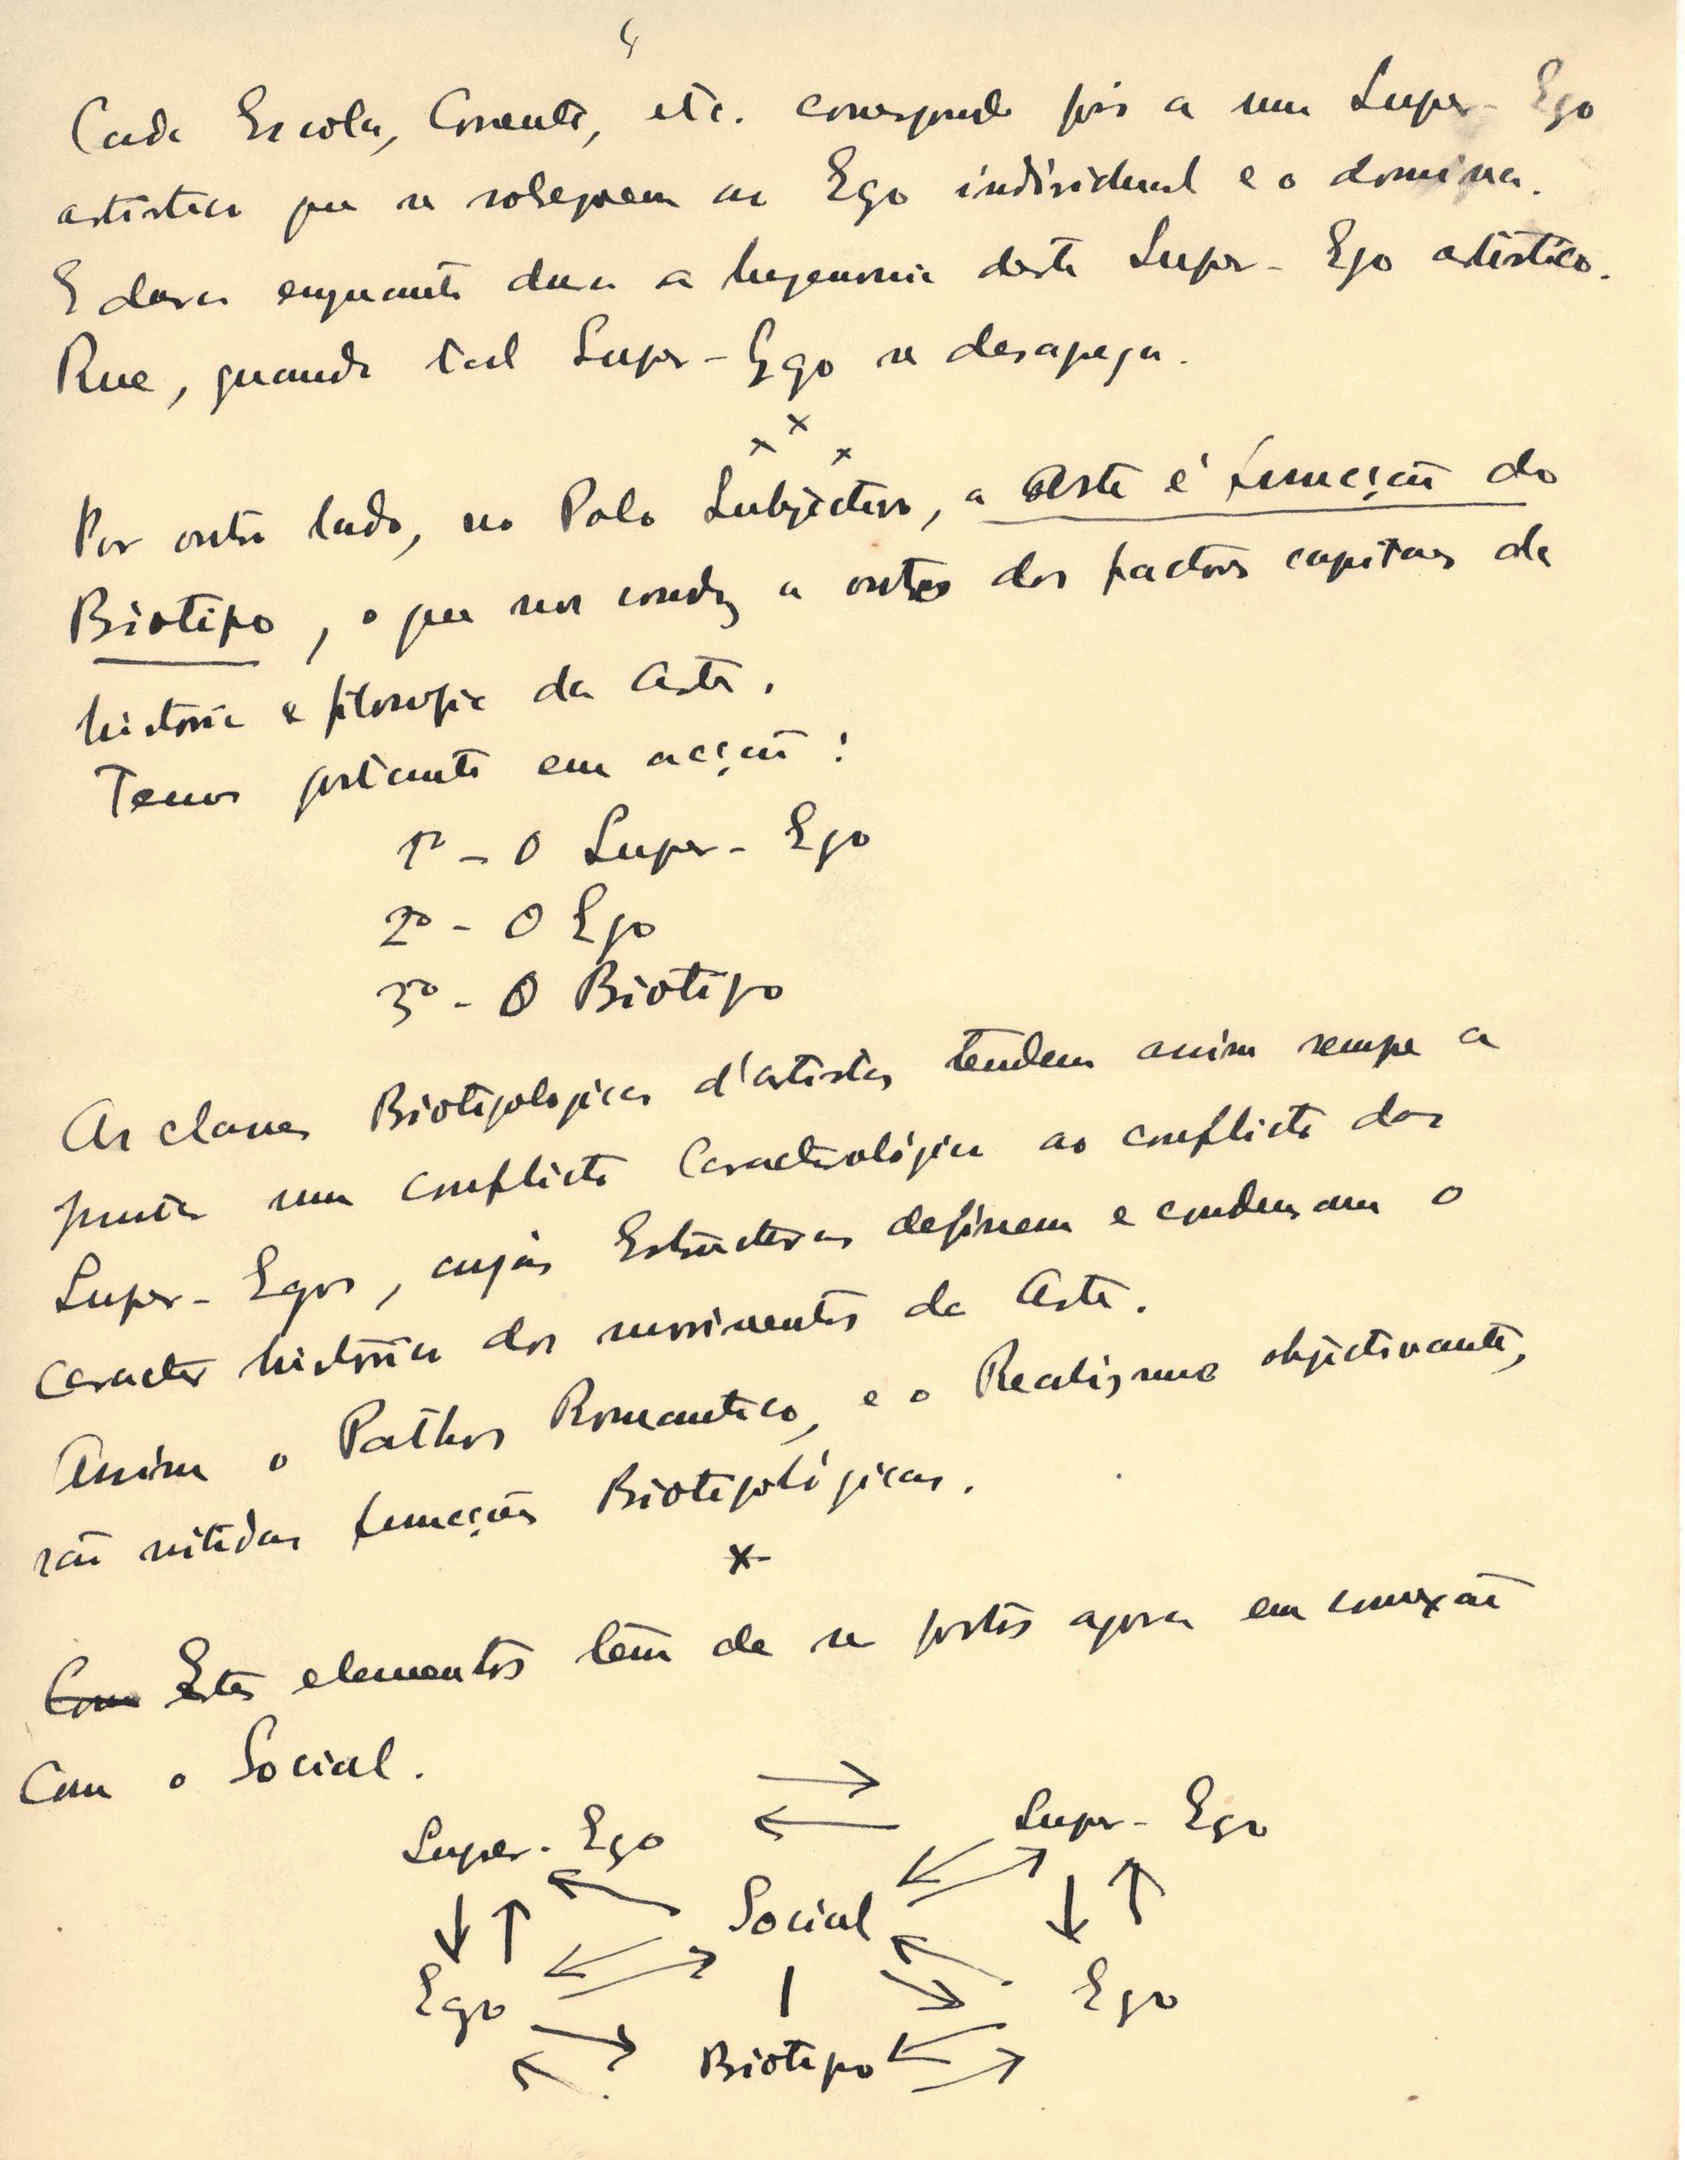 Cada Escola, Corrente, etc. corresponde pois a um Super-Ego
artistico que se sobrepoem ao Ego individual e o domina.
E dura enquanto dura a hegemonia deste Super-Ego artistico.
Rue, quando tal Super-Ego se desapega.
x x x
Por outro lado, no Polo Subjectivo, a Arte é função do
Biotipo, o que nos conduz a outro dos factores capitaes da
história e filosofia da Arte.
Temos portanto em acção:
1º - O Super-Ego
2º - O Ego
3º - O Biotipo
As classes Biotipologicas d'artistas tendem assim sempre a
juntar um conflicto Caracterológico ao conflicto dos
Super-Egos, cujas Estructuras definem e condensam o
caracter histórico dos movimentos da Arte.
Assim o Pathos Romantico, e o Realismo objectivante,
são nitidas funcções Biotipológicas.
x
Com Estes elementos têm de se pôr agora em conexão
Com o Social.
Super-Ego Super-Ego
Social
Ego Ego
Biotipo